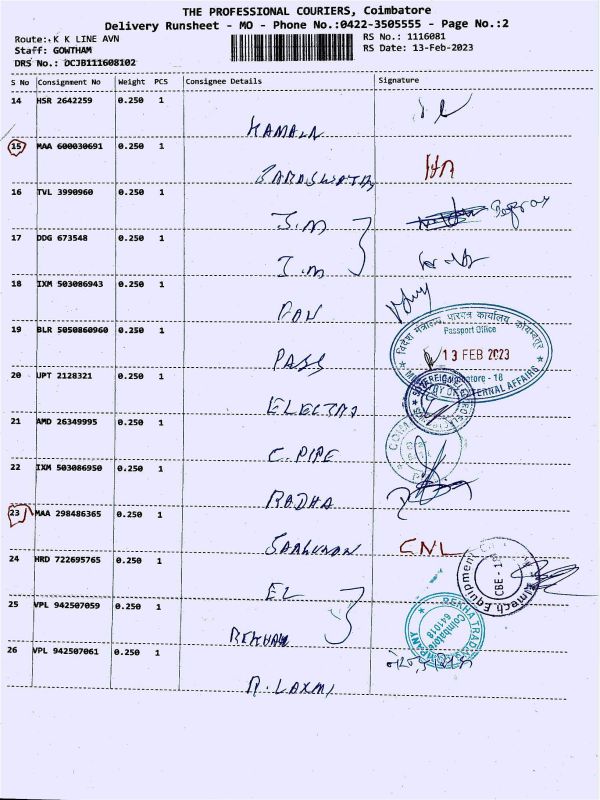 THE PROFESSIONAL COURIERS, Coimbatore
Delivery Runsheet - MO - Phone No.:0422-3505555 - Page No.:2
Route: K K LINE AVN
RS No.: 1116081
Staff: GOWTHAM
RS Date: 13-Feb-2023
DRS No.: DCJB111608102
S No Consignment No Weight PCS Consignee Details Signature
14 HSR 2642259 0.250 1
KAMALA
15 MAA 600030691 0.250 1
SARASWATHY
16 TVL 3990960 0.250 1
J.M
17 DDG 673548 0.250 1
I.M
18 IXM 503086943 0.250 1
PAN
19 BLR 5050860960 0.250 1
विदेश मंत्रालय पारपत्र कार्यालय कोयम्बतूर
Passport Office
13 FEB 2023
Coimbatore - 18
MINISTRY OF EXTERNAL AFFAIRS
PASS
20 UPT 2128321 0.250 1
SOVEREIGN
ELECTRO
21 AMD 26349995 0.250 1
C. PIPE
22 IXM 503086950 0.250 1
RADHA
23 MAA 298486365 0.250 1
CNL
24 HRD 722695765 0.250 1
Elmech Equipment
CBE - 18
EL
25 VPL 942507059 0.250 1
REKHA TRADING COMPANY
Coimbatore
641018
REKHA
26 VPL 942507061 0.250 1
R. LAXMI